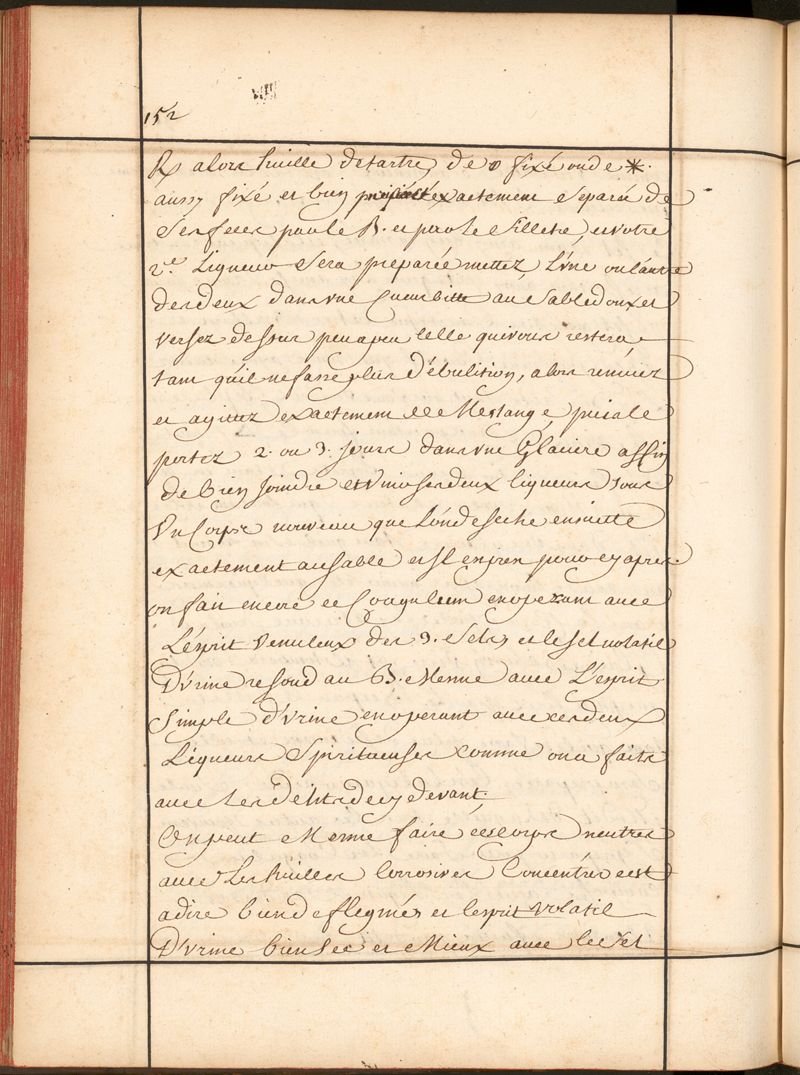 152
℞ alors huille detartre, de 🜕 fixé ou de ✳.
aussy fixé et bien exactement Separée de
Ses feces par le B. et par le filletre, et votre
2.e Liqueur Sera preparée mettez L'une ou l'autre
des deux dans une Cucurbitte au Sable doux et
versez dessus peu a peu celle qui vous restera
tant quil ne fasse plus d'ébulition, alors remüez
et agittez exactement ce Meslange, puis le
portez 2. ou 3. jours dans une Glaciere affin
de bien Joindre et Unir ses deux liqueurs sous
Un Corps nouveau que l'on deseche ensuitte
exactement au Sable et Il en pren pour cy apres.
on fait encore ce Coagulum en operant avec
L'esprit Venuleux des 3. Sels, et le sel volatil
D'Urine resoud au B. Mesme avec L'esprit
Simple d'Urine en operant avec ces deux
Liqueurs Spiritueuses comme on a fait
avec les dittes cy devant,
On peut Mesme faire ces corps neutres
avec Les huilles Corrosives Concentrées c'est
adire bien deflegmées et lesprit Volatil
D'Urine bien Sec et Mieux avec le Sel